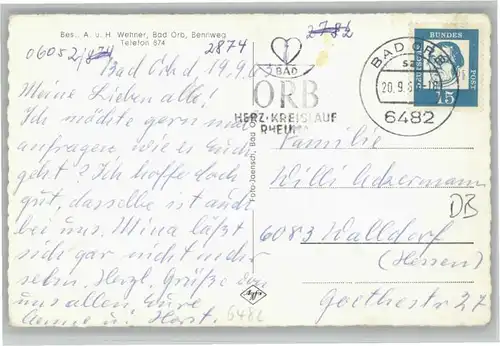 Bes.: A. u. H. Wehner, Bad Orb, Bennweg
Telefon 874
06052/874 2874
Bad Orb, 19.9.63
Meine Lieben alle!
Ich möchte gern mal
anfragen, wie es Euch
geht? Ich hoffe doch
gut, dasselbe ist auch
bei uns. Mina läßt
sich gar nicht mehr
sehen. Herzl. Grüße von
uns allen Eure
Aenne u. Horst.
6482
Foto-Jaensch, Bad Orb
Agfa
2782
BAD
ORB
HERZ·KREISLAUF
RHEUMA
BAD ORB
20.9.
6482
DEUTSCHE
BUNDES
POST
15
Familie
Willi Ackermann
DB
6083 Walldorf
(Hessen)
Goethestr 27